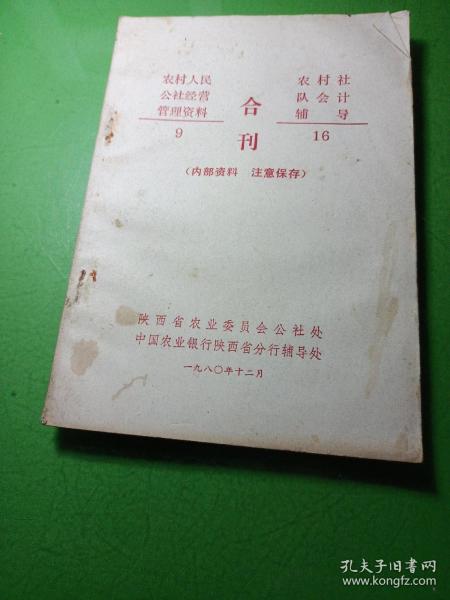 农村人民
公社经营
管理资料
9
合
刊
农村社
队会计
辅导
16
(内部资料 注意保存)
陕西省农业委员会公社处
中国农业银行陕西省分行辅导处
一九八〇年十二月
孔夫子旧书网
www.kongfz.com